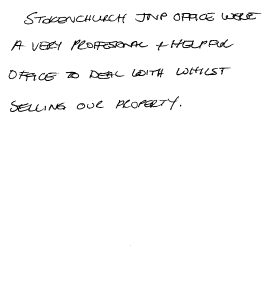 STOKENCHURCH JNP OFFICE WERE
A VERY PROFESSIONAL + HELPFUL
OFFICE TO DEAL WITH WHILST
SELLING OUR PROPERTY.